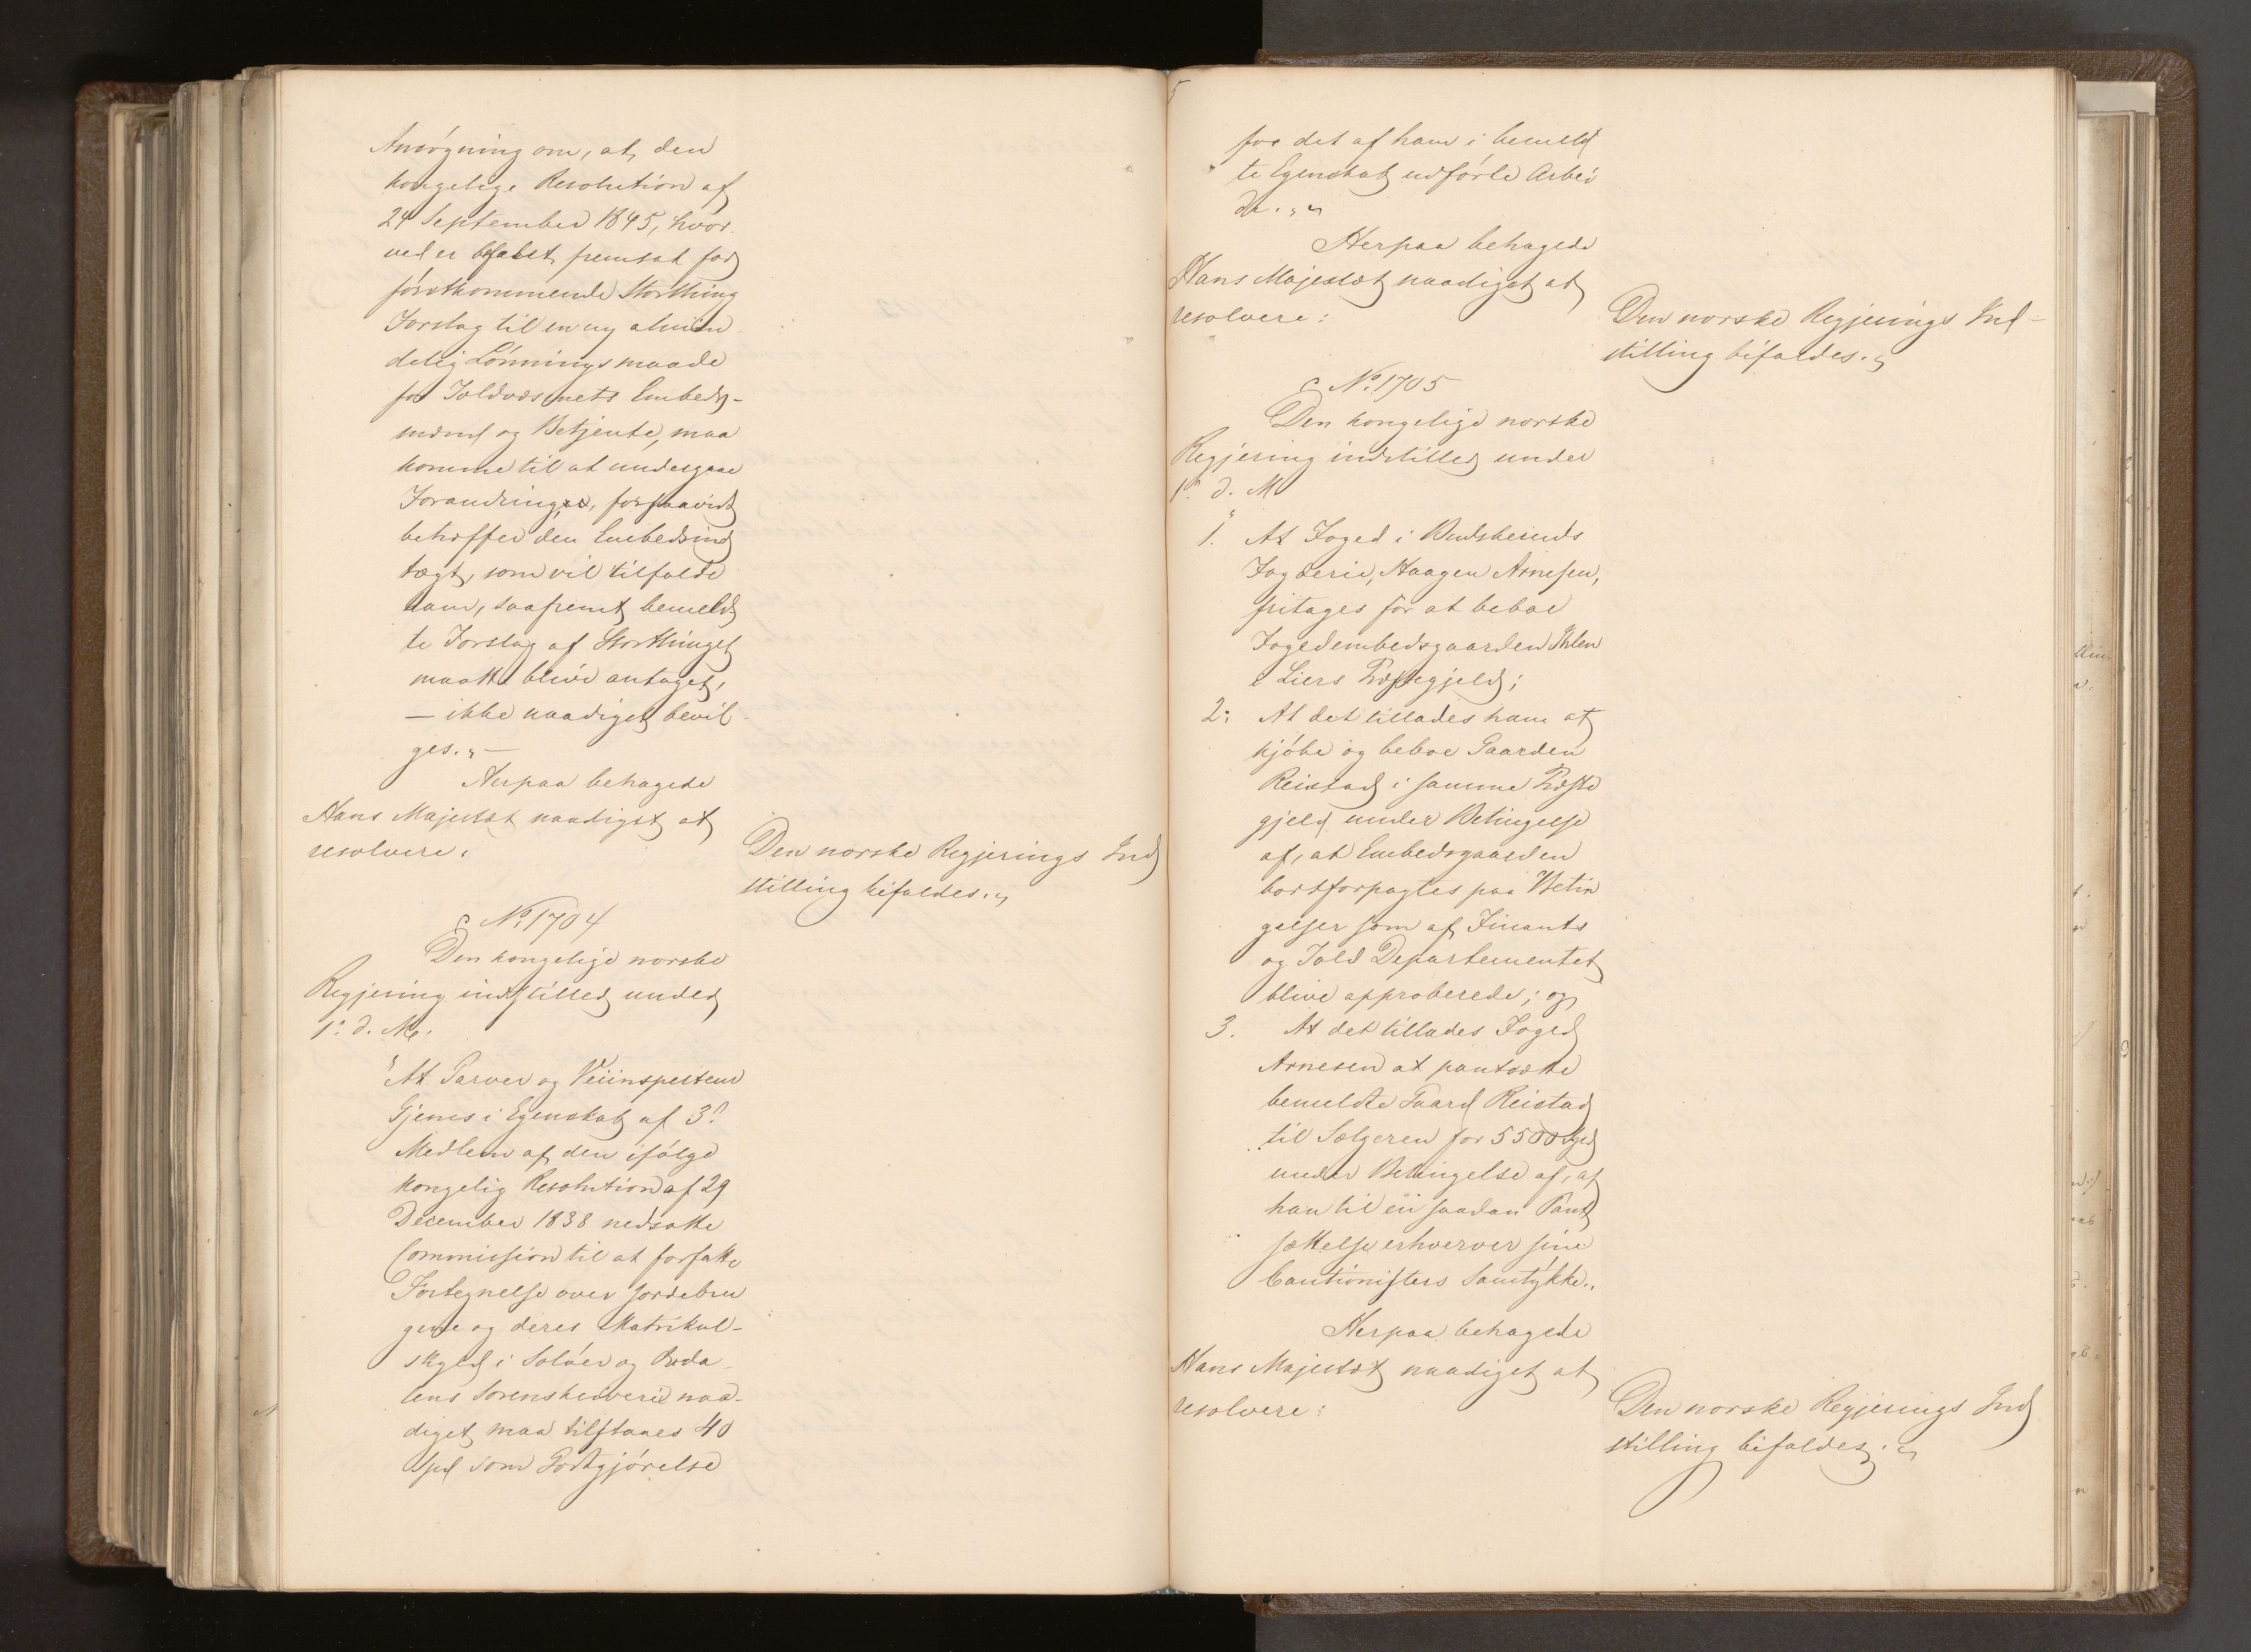 Ansögning om, at den
kongelige Resolution af
24 September 1845, hvor
ved er befalet fremsat for
förstkommende Storthing
Forslag til en ny almin
delig Lönningsmaade
for Toldvæsenets Embeds-
mænd og Betjente, maa
komme til at undergaae
Forandring, forsaavidt
betræffer den Embedsind
tægt, som vil tilfalde
ham, saafremt bemeld
te Forslag af Storthinget
maatte blive antaget,
— ikke naadigst bevil
ges." —
Herpaa behagede
Hans Majestæt naadigst at
resolvere:
Den norske Regjerings Ind
stilling bifaldes."
No. 1704
Den kongelige norske
Regjering indstiller under
1ste d. M.
"At Garver og Veiinspecteur
Gjems i Egenskab af 3die
Medlem af den ifölge
kongelig Resolution af 29
December 1838 nedsatte
Commission til at forfatte
Fortegnelse over Jordebru
gene og deres Matrikul-
skyld i Solöer og Oudа
lens Sorenskriverie naa-
digst maa tilstaaes 40
Spd som Godtgjörelse
for det af ham i bemeld
te Egenskab udförte Arbei
de."
Herpaa behagede
Hans Majestæt naadigst at
resolvere:
Den norske Regjerings Ind-
stilling bifaldes."
No. 1705
Den kongelige norske
Regjering indstiller under
1ste d. M
"1. At Foged i Buskeruds
Fogderie, Haagen Arnesen,
fritages for at beboe
Fogedembedsgaarden Ihlen
i Liers Præstegjeld;
2: At det tillades ham at
kjöbe og beboe Gaarden
Reistad i samme Præste
gjeld under Betingelse
af, at Embedsgaarden
bortforpagtes paa Betin
gelser som af Finants
og Told Departementet
blive approberede; og
3. At det tillades Foged
Arnesen at pantsætte
bemeldte Gaard Reistad
til Sælgeren for 5500 Spd
under Betingelse af, at
han til en saadan Pant
sættelse erhverver sine
Cautionisters Samtykke."
Herpaa behagede
Hans Majestæt naadigst at
resolvere:
Den norske Regjerings Ind
stilling bifaldes."